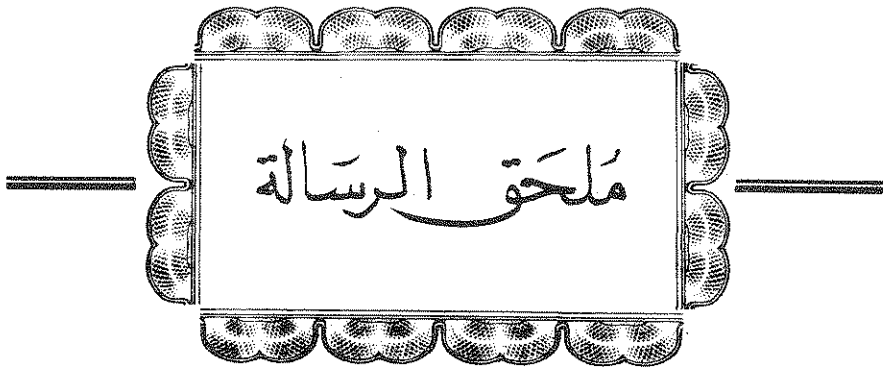 مُلحَق الرسَالة